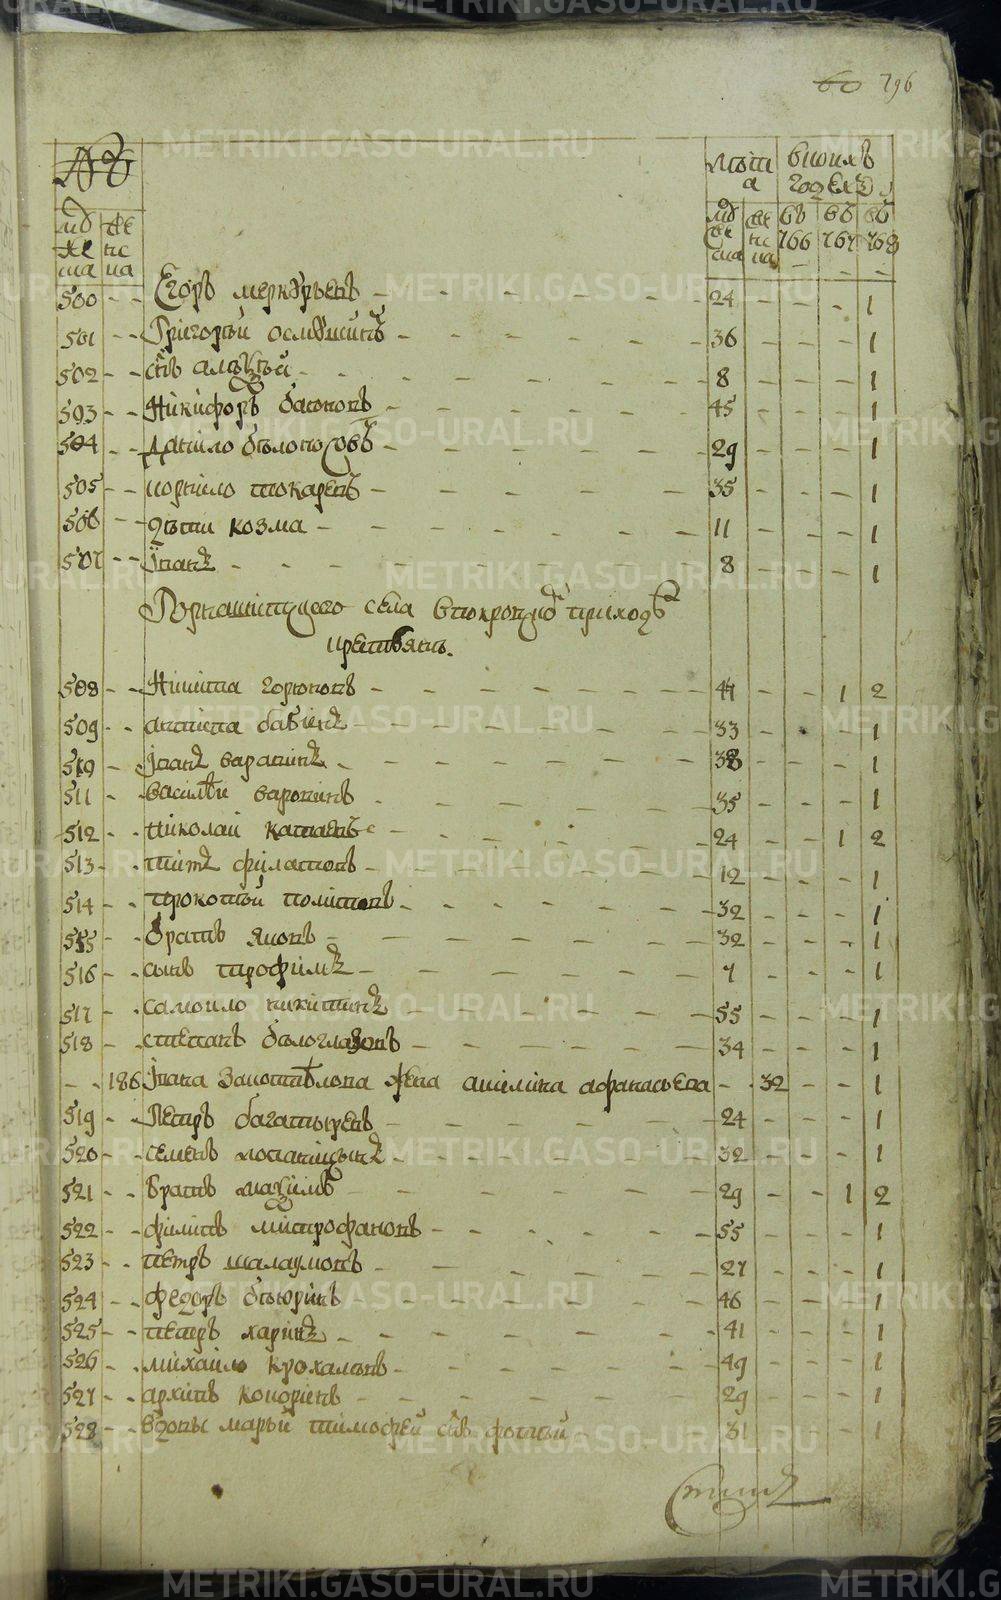 60 796
№
лѣта
в коихъ годехъ
муж ска
же нс ка
муж ска
же нс ка
въ 766
въ 767
въ 768
500 - - Егоръ меркурьевъ - 24 - - - 1
501 - - Григорей осмушинъ - 36 - - - 1
502 - - снъ алѣксѣй - 8 - - - 1
503 - - Никифоръ баженовъ - 45 - - - 1
504 - - данило бѣлоносовъ - 29 - - - 1
505 - - корнило токаревъ - 35 - - - 1
506 - - дѣти козма - 11 - - - 1
507 - - Iванъ - 8 - - - 1
Горнощитцкого села приходѣ
крестьянъ.
508 - - Никита горюновъ - 44 - - 1 2
509 - - антипа бабинъ - 33 - - - 1
510 - Iванъ варакинъ - 38 - - - 1
511 - - василѣй воронинъ - 35 - - - 1
512 - - николай катаевъ - 24 - - 1 2
513 - - титъ филатовъ - 12 - - - 1
514 - - прокопей политовъ - 32 - - - 1
515 - - братъ яковъ - 32 - - - 1
516 - - сынъ трофимъ - 7 - - - 1
517 - - самойло никитинъ - 55 - - - 1
518 - - степанъ бѣлоглазовъ - 34 - - - 1
- - 186 Iвана жена акилина афанасьева - 32 - - 1
519 - - Петръ багатыревъ - 24 - - - 1
520 - - семенъ лопаницынъ - 32 - - - 1
521 - - братъ максимъ - 29 - - 1 2
522 - - филипъ митрофановъ - 55 - - - 1
523 - - петръ шалаумовъ - 27 - - - 1
524 - - федоръ - 46 - - - 1
525 - - петръ харинъ - 41 - - - 1
526 - - михайло крохалевъ - 49 - - - 1
527 - - архипъ конюринъ - 29 - - - 1
528 - - вдовы марьи тимофей снъ фотиевъ - 31 - - - 1
METRIKI.GASO-URAL.RU